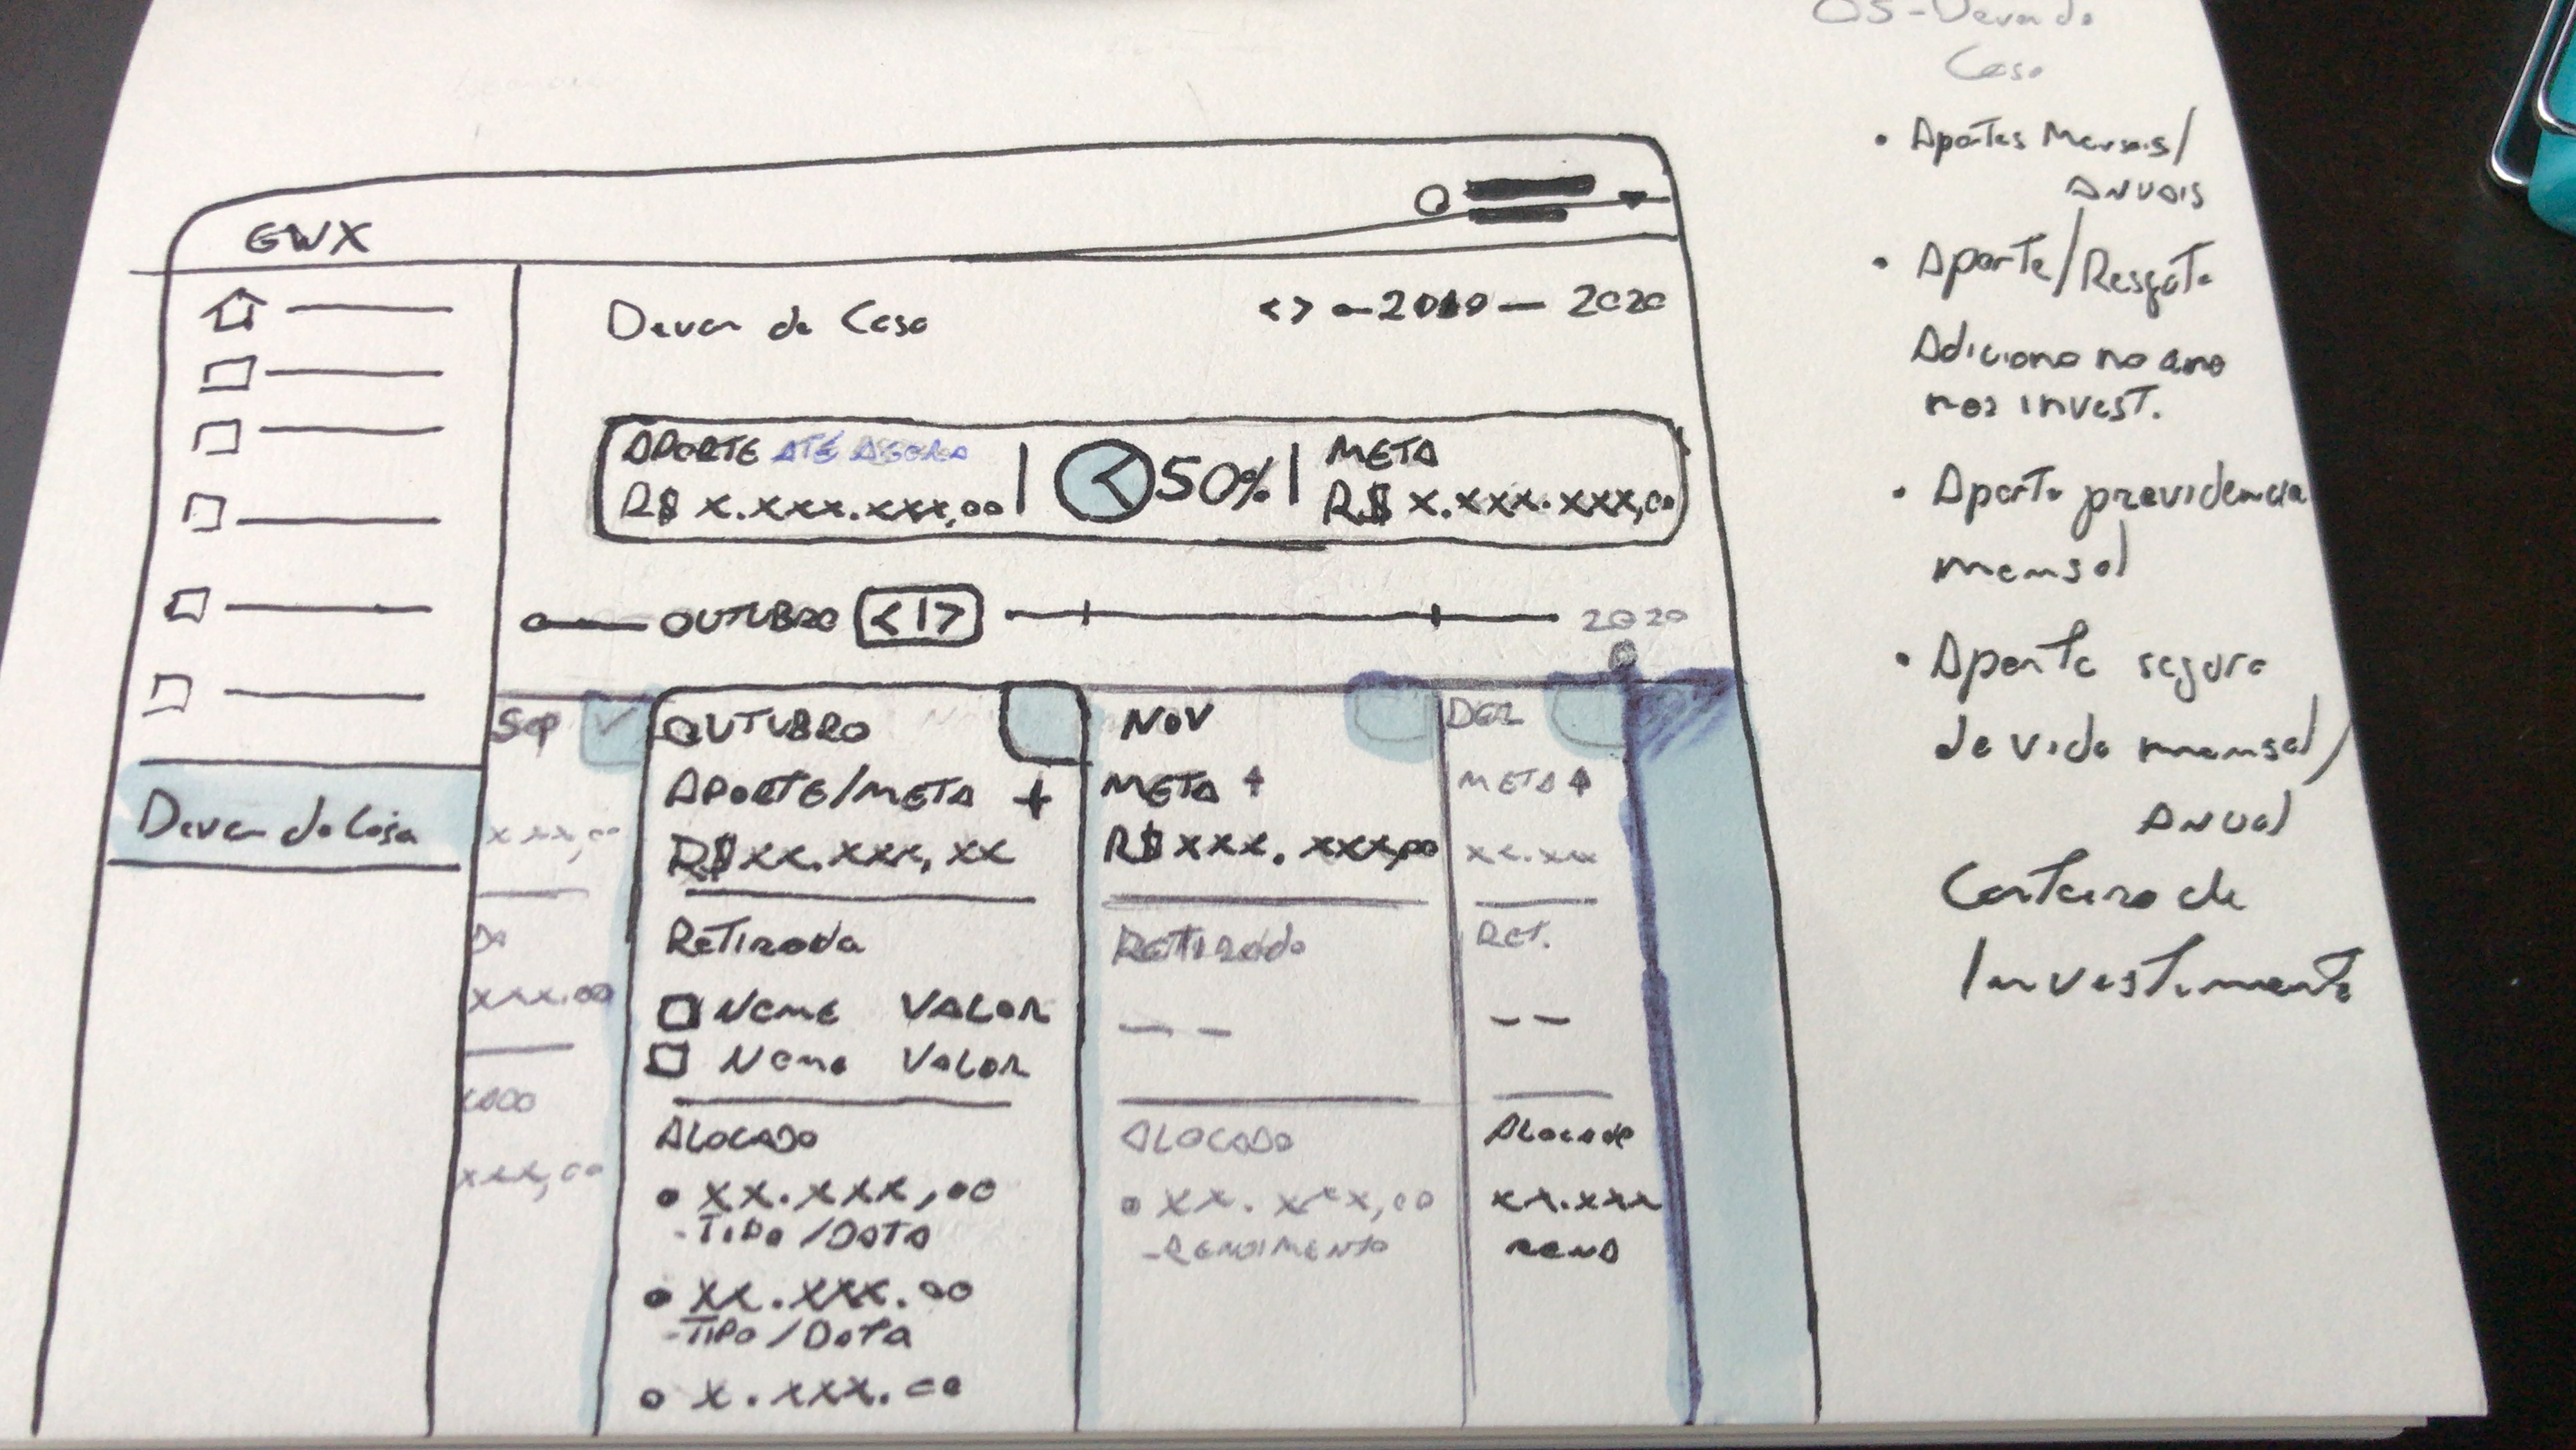 GWX
Dever de Casa
< > 2019 — 2020
APORTE ATÉ AGORA
R$ x.xxx.xxx,00
50%
META
R$ x.xxx.xxx,00
OUTUBRO < | >
2020
Dever de Casa
Sep
xxx,00
xxx.00
CADO
xxx,00
OUTUBRO
APORTE/META +
R$ xx.xxx,xx
Retirada
Nome VALOR
Nome Valor
ALOCADO
• xx.xxx,00
- TIPO/DATA
• xx.xxx.00
- TIPO/DATA
• x.xxx.00
NOV
META ↑
R$ xxx.xxx,00
Retirada
— —
ALOCADO
• xx.xxx,00
- RENDIMENTO
DEZ
META ↑
xx.xxx
RET.
— —
Alocado
xx.xxx
REND
05 - Dever de
Casa
• Aportes Mensais/
ANUAIS
• Aporte/Resgate
Adiciono no ano
nos invest.
• Aporte previdencia
mensal
• Aporte seguro
de vida mensal/
ANUAL
Carteira de
Investimento